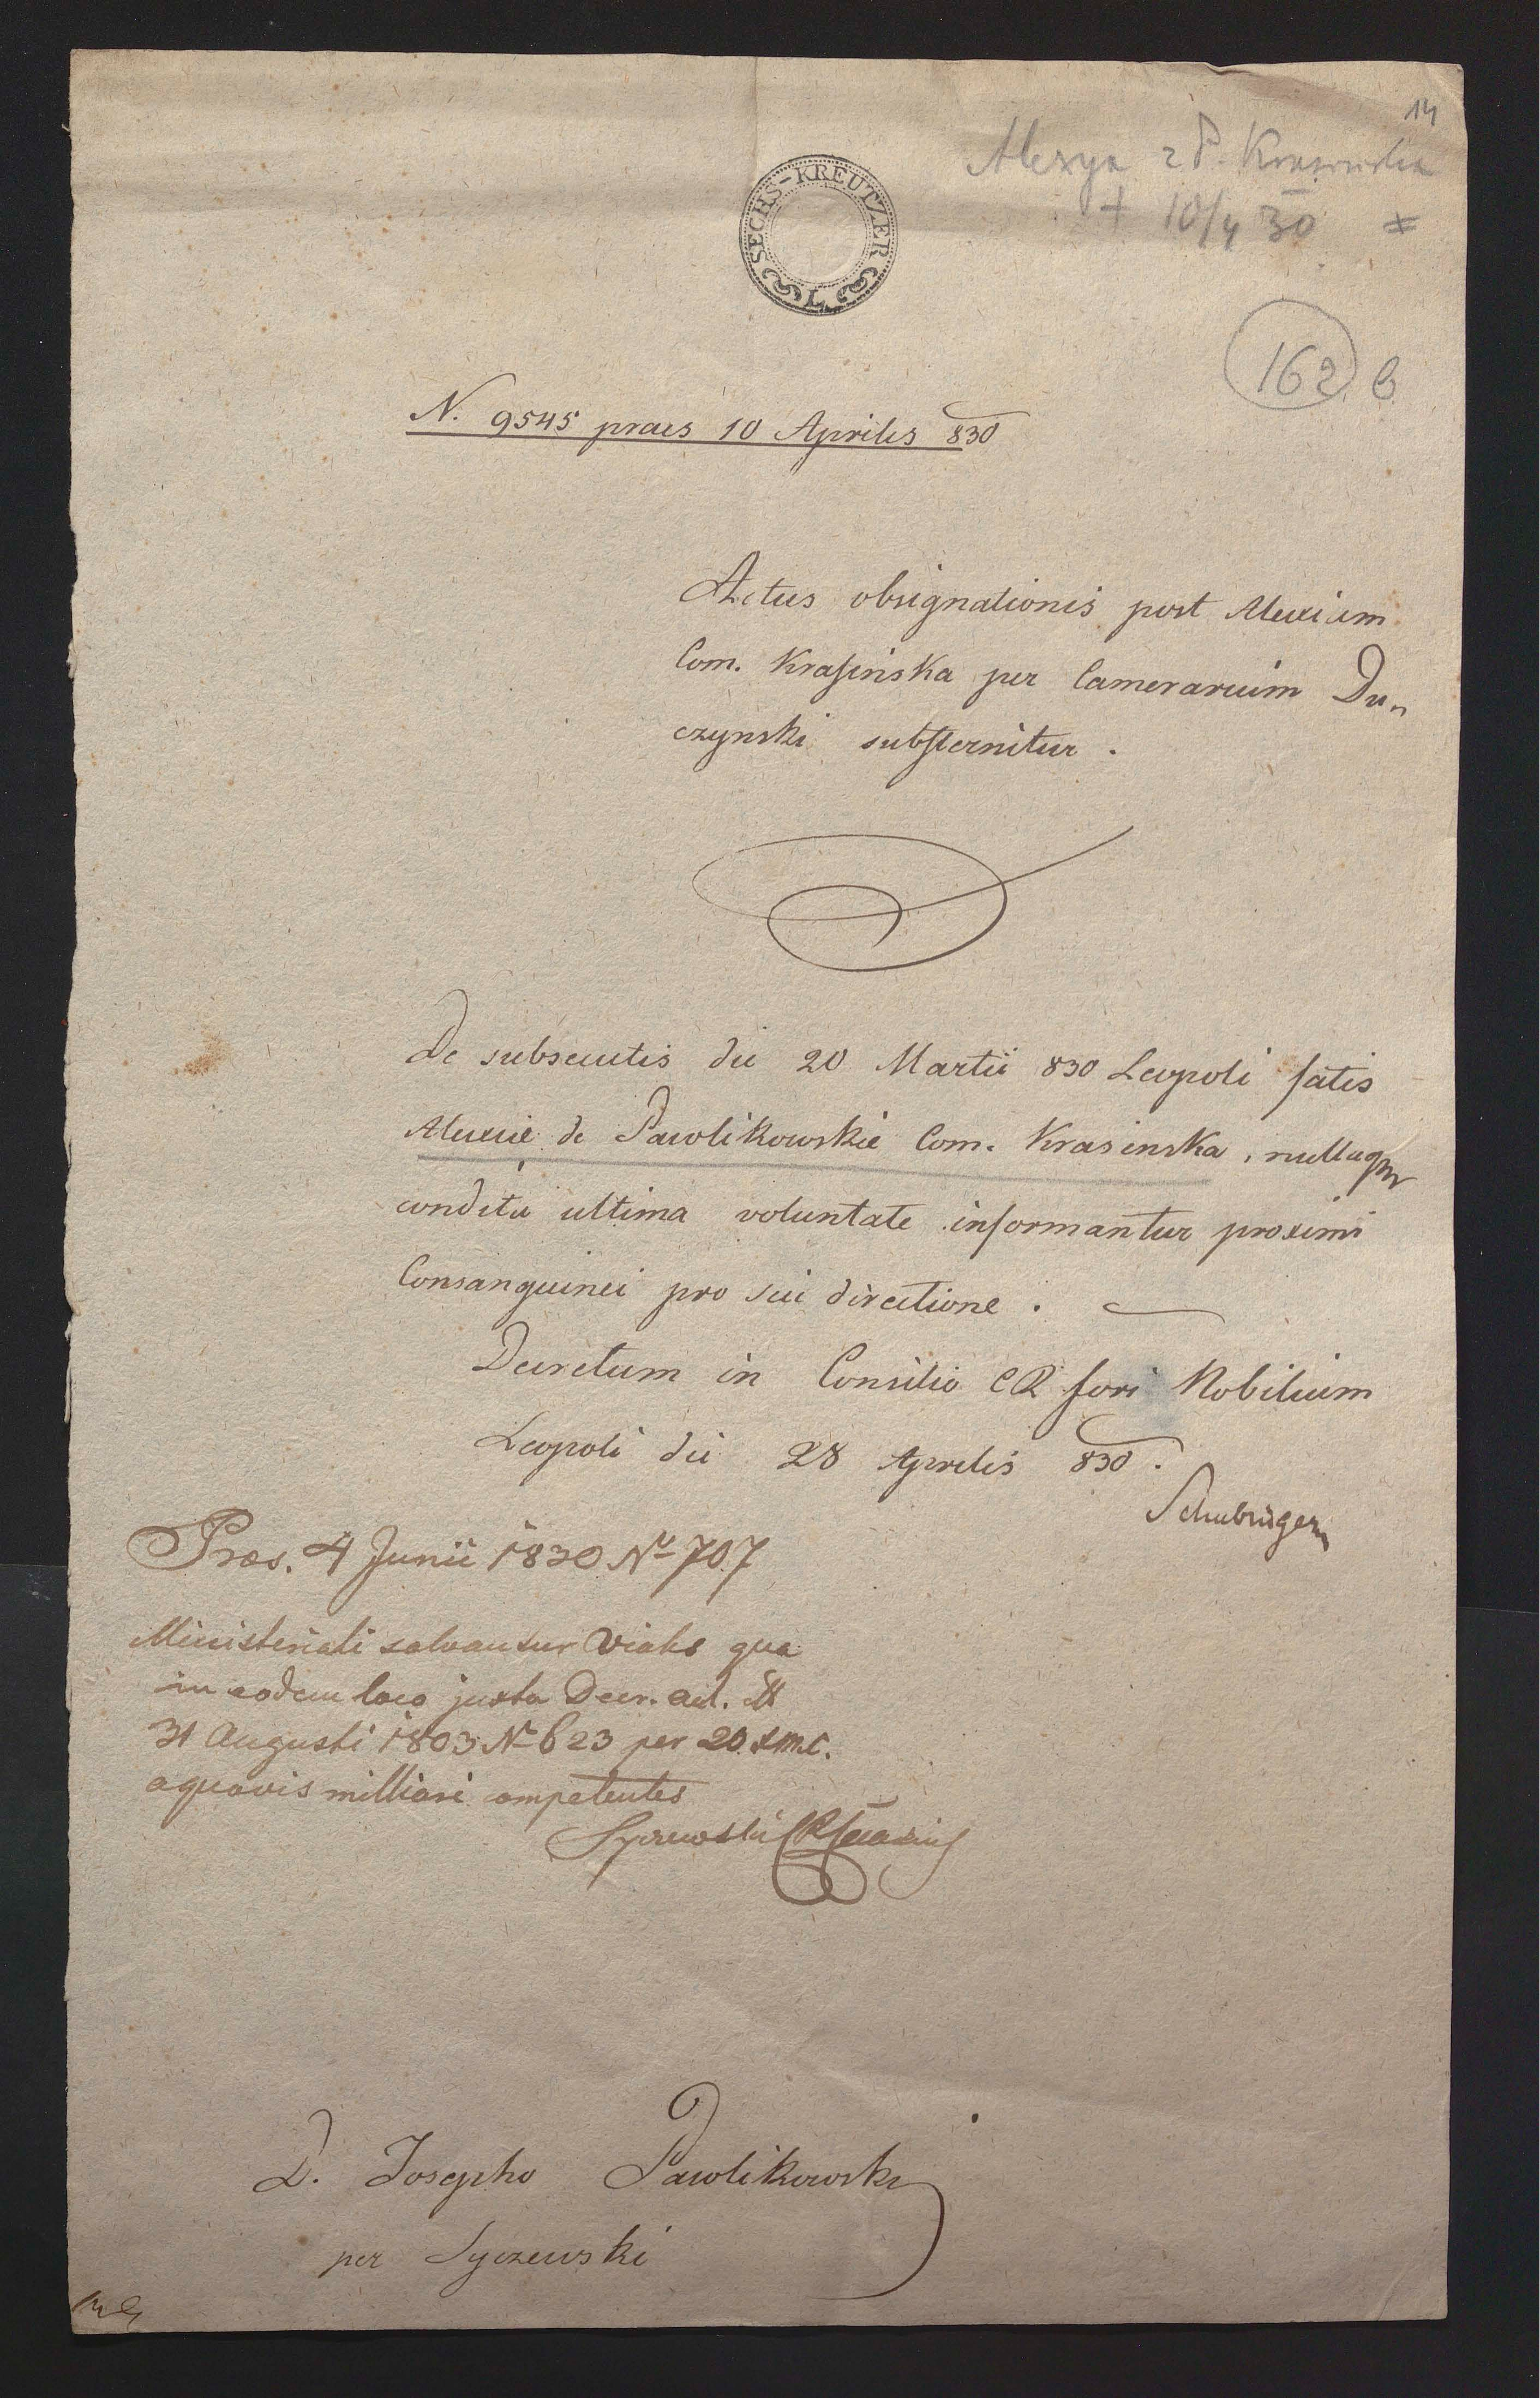 14
Alexya z P. Krasińska
+ 10/4 30 #
SECHS-KREUTZER
L
162 b
N. 9545 praes 10 Aprilis 830
Actus obsignationis post Alexiam
Com. Krasinska per Camerarium Du„
czynski substernitur.
De subsecutis die 20 Martii 830 Leopoli fatis
Alexiæ de Pawlikowskie Com. Krasinska, nullaque
condita ultima voluntate informantur proximi
Consanguinei pro sui directione.
Decretum in Consilio CR fori Nobilium
Leopoli die 28 Aprilis 830.
Præs. 4 Junii 1830 No 707
Ministeriali solvantur qua
in eodem loco juxta Decr.
31 Augusti 1803 No 623 per 20 x m.c.
a quovis milliari competentes
D. Josepho Pawlikowski
per Syczewski